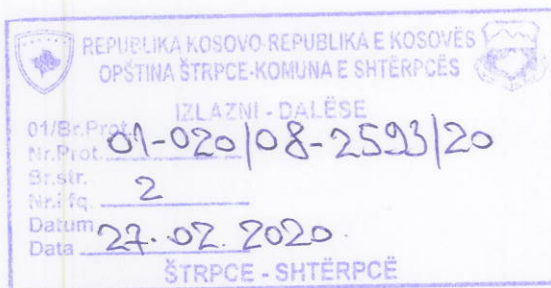 REPUBLIKA KOSOVO-REPUBLIKA E KOSOVËS
OPŠTINA ŠTRPCE-KOMUNA E SHTËRPCËS
IZLAZNI - DALËSE
01/Br.Prot.
Nr.Prot. 01-020/08-2593/20
Br.str.
Nr.i fq. 2
Datum
Data 27.02.2020.
ŠTRPCE - SHTËRPCË